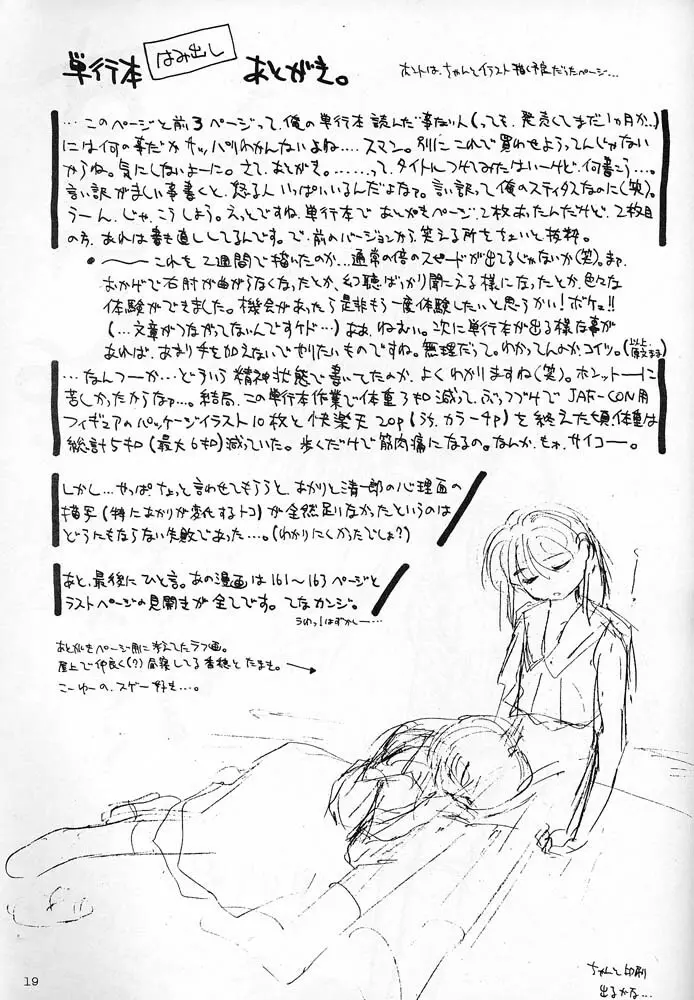 単行本 はみ出し あとがき。
ホントは、ちゃんとイラスト描く予定だったページ…
…このページと前3ページって、俺の単行本読んだ事ない人(っても、発売してまだ1ヵ月か。)
には何の事だかサッパリわかんないよね…。スマン。別にこれで買わせようってんじゃない
からね。気にしないよーに。さて、あとがき。……って、タイトルつけてみたはいーけど、何書こう…。
言い訳がましい事書くと、怒る人いっぱいいるんだよなァ。言い訳って俺のスティタスなのに(笑)。
うーん、じゃ、こうしよう。えっとですね、単行本であとがきページ、2枚あったんだけど、2枚目
の方、あれは書き直ししてるんです。で、前のバージョンから、笑える所をちょいと抜粋。
●〜これを2週間で描いたのか…通常の倍のスピードが出てるじゃないか(笑)。まァ、
おかげで右肘が曲がらなくなったとか、幻聴ばっかり聞こえる様になったとか、色々な
体験ができました。機会があったら是非もう一度体験したいと思うかい!ボケェ!!
(…文章がつながってないんですケド…)ああ、ねむい。次に単行本が出る様な事が
あれば、あまり手を加えないでやりたいものですね。無理だって。わかってんのかコイツ。(厳まま)
…なんつーか…どういう精神状態で書いてたのか、よくわかりますね(笑)。ホンットーに
苦しかったからなァ…。結局、この単行本作業で体重3キロ減って、ぶっつづけでJAF-CON用
フィギュアのパッケージイラスト10枚と快楽天20p(うち、カラー4p)を終えた頃、体重は
総計5キロ(最大6キロ)減っていた。歩くだけで筋肉痛になるの。なんか、もォ、サイコー。
しかし…やっぱ、ちょっと言わせてもらうと、あかりと清一郎の心理面の
描写(特にあかりが変化するトコ)が全然足りなかったというのは
どうにもならない失敗であった…。(わかりにくかったでしょ?)
あと、最後にひと言。あの漫画は161〜163ページと
ラストページの見開きが全てです。てなカンジ。
うわっ!はずかしー…
あとがきページ用に考えてたラフ画。
屋上で仲良く(?)昼寝してる香穂とたまき。
こーゆーの、スゲー好き…。
ちゃんと印刷
出るかな…
19